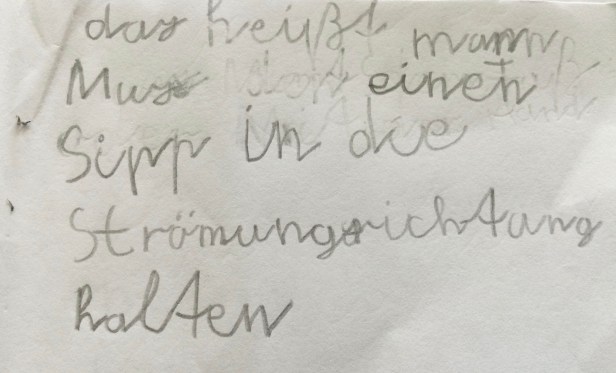 das heißt mann
Mus einen
Sipp in die
Strömungsrichtung
halten